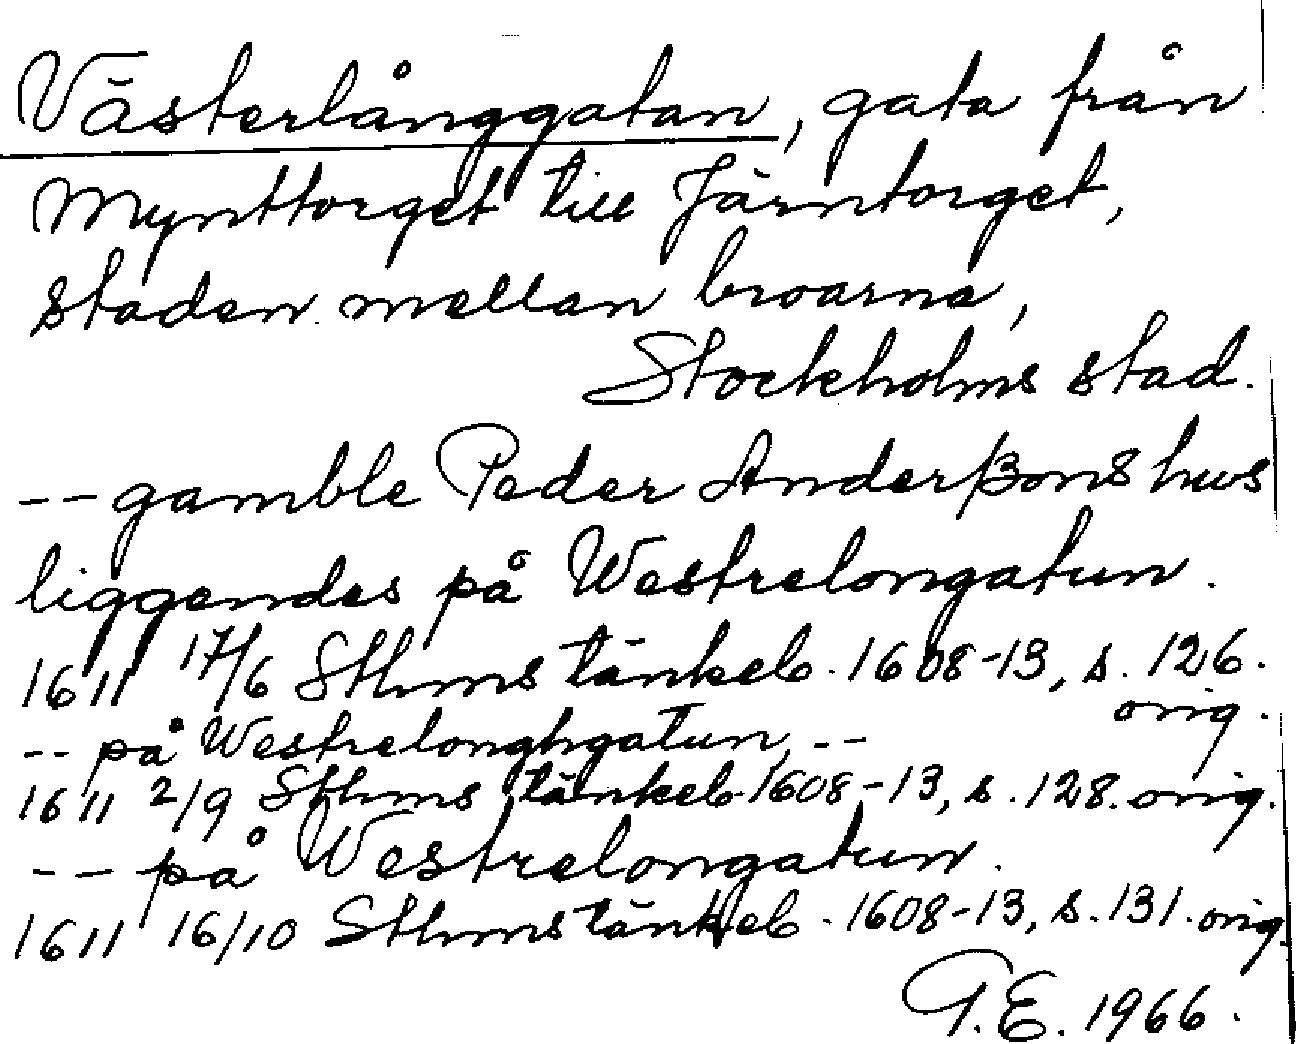 Västerlånggatan, gata från
Mynttorget till Järntorget,
staden mellan broarna,
Stockholms stad.
-- gamble Peder Anderßons hws
liggendes på Westrelongatun.
1611 17/6 Sthms tänkeb. 1608-13, s. 126.
orig.
-- på Westrelonghgatun, --
1611 2/9 Sthms tänkeb. 1608-13, s. 128. orig.
-- på Westrelongatun.
1611 16/10 Sthms tänkeb. 1608-13, s. 131. orig.
G.E. 1966.